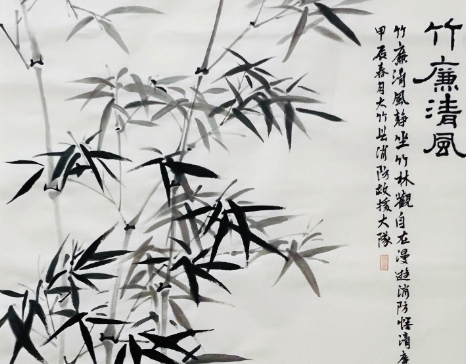 竹廉清風
竹廉清風静坐竹林觀自在漫遊消防怪清庭
甲辰春月大竹县消防救援大隊